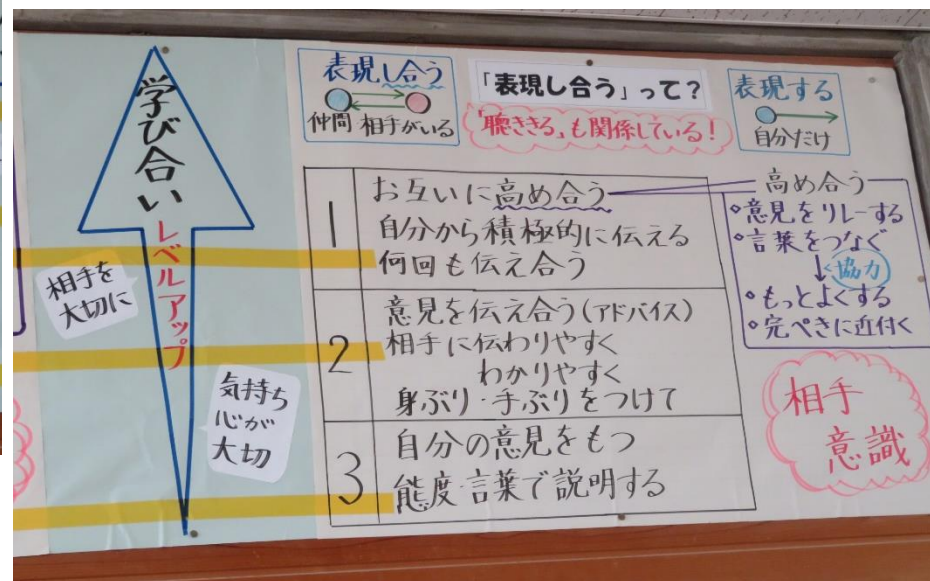 学び合い
レベルアップ
相手を
大切に
気持ち
心が
大切
表現し合う
仲間 相手がいる
「表現し合う」って?
「聴ききる」も関係している!
表現する
自分だけ
1
お互いに高め合う
自分から積極的に伝える
何回も伝え合う
2
意見を伝え合う(アドバイス)
相手に伝わりやすく
わかりやすく
身ぶり・手ぶりをつけて
3
自分の意見をもつ
態度 言葉で説明する
高め合う
・意見をリレーする
・言葉をつなぐ
↓協力
・もっとよくする
・完ぺきに近付く
相手
意識